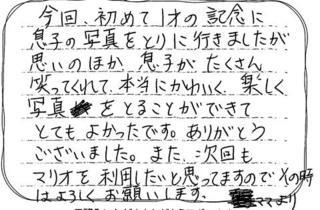 今回、初めて1才の記念に
息子の写真をとりに行きましたが
思いのほか、息子がたくさん
笑ってくれて、本当にかわいく、楽しく
写真をとることができて
とてもよかったです。ありがとう
ございました。また、次回も
マリオを利用したいと思ってますのでその時
はよろしくお願いします。
ママより